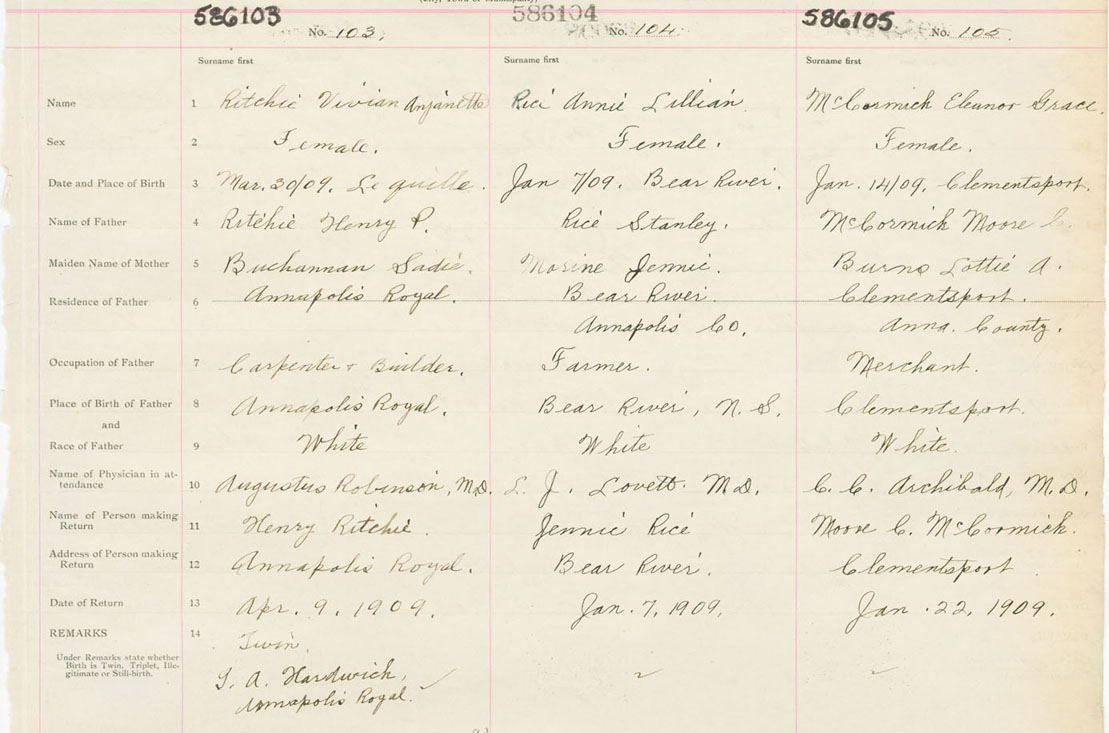 586103 586104 586105
No. 103. No. 104. No. 105.
Surname first Surname first Surname first
Name 1 Ritchie Vivian Anjanetta Rice Annie Lillian McCormick Eleanor Grace.
Sex 2 Female. Female. Female.
Date and Place of Birth 3 Mar. 30/09. Le quille. Jan 7/09. Bear River. Jan. 14/09. Clementsport.
Name of Father 4 Ritchie Henry P. Rice Stanley. McCormick Moore C.
Maiden Name of Mother 5 Buchannan Sadie. Morine Jennie. Burns Lottie A.
Residence of Father 6 Annapolis Royal. Bear River. Clementsport.
Annapolis Co. Anna. County.
Occupation of Father 7 Carpenter + Builder. Farmer. Merchant.
Place of Birth of Father 8 Annapolis Royal. Bear River, N. S. Clementsport.
and
Race of Father 9 White White White.
Name of Physician in at-
tendance 10 Augustus Robinson, M.D. L. J. Lovett. M.D. C. C. Archibald, M.D.
Name of Person making
Return 11 Henry Ritchie. Jennie Rice Moore C. McCormick.
Address of Person making
Return 12 Annapolis Royal. Bear River. Clementsport
Date of Return 13 Apr. 9, 1909. Jan. 7, 1909. Jan. 22, 1909.
REMARKS 14 Twin.
Under Remarks state whether
Birth is Twin, Triplet, Ille-
gitimate or Still-birth.
T. A. Hardwich,
Annapolis Royal.